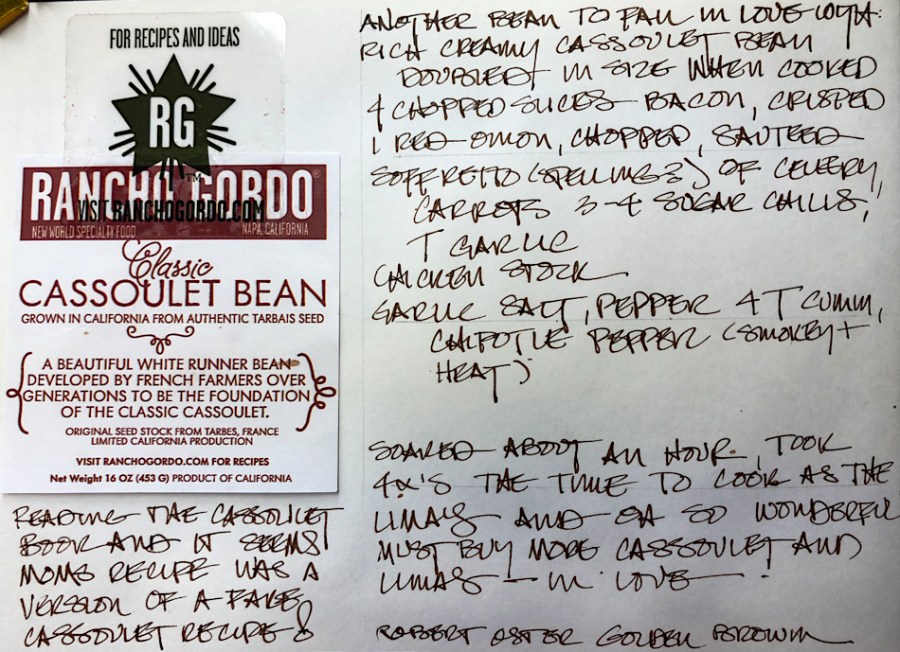 FOR RECIPES AND IDEAS
RG
™
RANCHO GORDO®
VISIT RANCHOGORDO.COM
NEW WORLD SPECIALTY FOOD NAPA, CALIFORNIA
Classic
CASSOULET BEAN
GROWN IN CALIFORNIA FROM AUTHENTIC TARBAIS SEED
A BEAUTIFUL WHITE RUNNER BEAN
DEVELOPED BY FRENCH FARMERS OVER
GENERATIONS TO BE THE FOUNDATION
OF THE CLASSIC CASSOULET.
ORIGINAL SEED STOCK FROM TARBES, FRANCE
LIMITED CALIFORNIA PRODUCTION
VISIT RANCHOGORDO.COM FOR RECIPES
Net Weight 16 OZ (453 G) PRODUCT OF CALIFORNIA
READING THE CASSOULET
BOOK AND IT SEEMS
MOMS RECIPE WAS A
VERSION OF A FAKE
CASSOULET RECIPE!
ANOTHER BEAN TO FALL IN LOVE WITH:
RICH CREAMY CASSOULET BEAN
DOUBLED IN SIZE WHEN COOKED
4 CHOPPED SLICES BACON, CRISPED
1 RED ONION, CHOPPED, SAUTEED
SOFFRETTO (SPELLING?) OF CELERY,
CARROTS 3-4 SUGAR CHILIS,
T GARLIC
CHICKEN STOCK
GARLIC SALT, PEPPER 4 T CUMIN,
CHIPOTLE PEPPER (SMOKEY +
HEAT)
SOAKED ABOUT AN HOUR. TOOK
4X'S THE TIME TO COOK AS THE
LIMAS AND OH SO WONDERFUL
MUST BUY MORE CASSOULET AND
LIMAS – IN LOVE
ROBERT OSTER GOLDEN BROWN